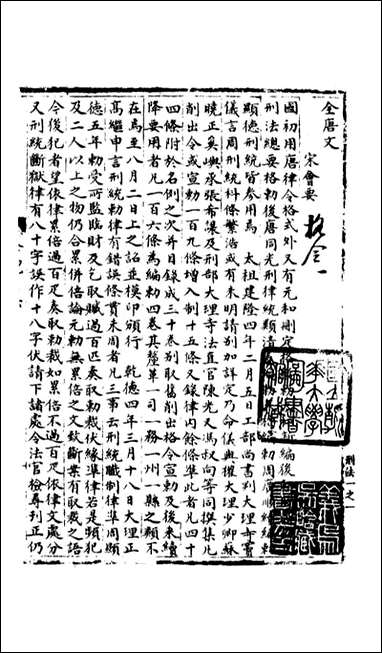 全唐文
宋會要
格令一
國初用唐律令格式外又有元和刪定後編後
刑法總要格敕後唐同光刑律統類清敕周廣順續編敕
顯德刑統皆參用焉 太祖建隆四年二月五日工部尚書判大理寺竇
儀言周刑統科條繁浩或有未明請别加詳定乃命儀與權大理少卿蘇
曉正奚嶼承張希讓及刑部大理寺法直官陳光乂馮叔向等同撰集凡
削出令或宣勅一百九條增入制十五條又錄律内餘條準此者凡四十
四條附於名例之次并目録成三十卷别取舊削出格令宣勅及後來續
降要用者凡一百六條為編勅四卷其釐革一司一務一州一縣之類不
在焉至八月二日上之詔並模印頒行 乾德四年三月十八日大理正
高繼申言刑統勅律有錯誤條貫未周者凡三事云刑統職制律準周顯
德五年勅受所監臨財及乞取贓過百匹奏取勅裁伏緣準律若是頻犯
及二人以上之物仍合累併倍論元勅無累倍之文致斷案有取裁之語
令後犯者望依律累倍過百疋奏取勅裁如累倍不過百疋依律文處分
又刑統斷獄律有八十字誤作十八字伏請下諸處令法官檢尋刊正仍
刑法一之一